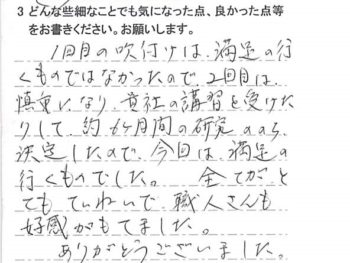 3 どんな些細なことでも気になった点、良かった点等
をお書きください。お願いします。
1回目の吹付けは、満足の行
くものではなかったので、2回目は、
慎重になり、貴社の講習を受けた
りして、約6ヶ月間の研究ののち、
決定したので、今回は、満足の
行くものでした。 全てがと
てもていねいで、職人さんも
好感がもてました。
ありがとうございました。